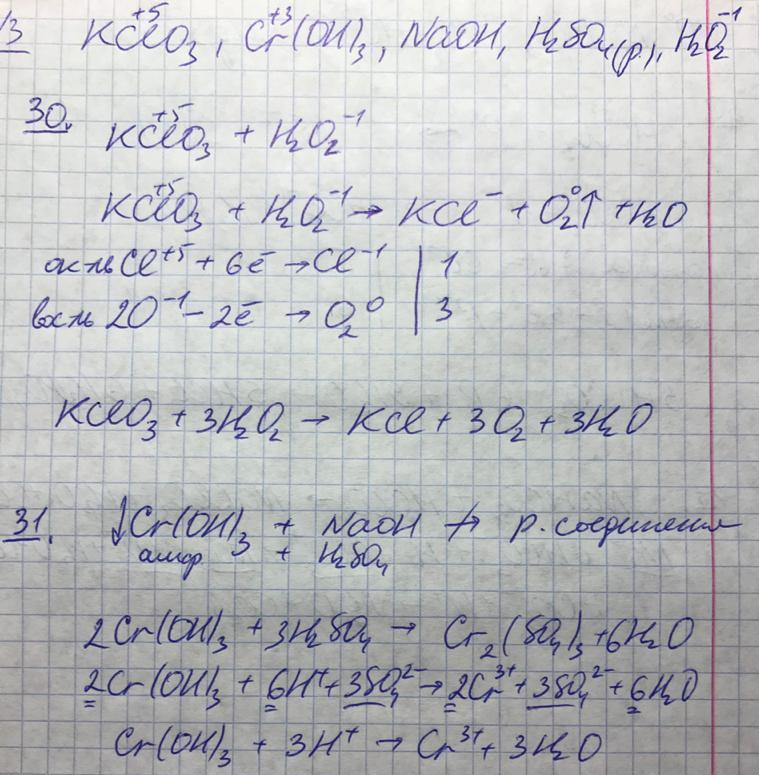 /3 KCl⁺⁵O₃, Cr⁺³(OH)₃, NaOH, H₂SO₄(р.), H₂O₂⁻¹
30. KCl⁺⁵O₃ + H₂O₂⁻¹
KCl⁺⁵O₃ + H₂O₂⁻¹ → KCl⁻ + O₂⁰↑ + H₂O
ок-ль Cl⁺⁵ + 6ē → Cl⁻¹ | 1
вос-ль 2O⁻¹ - 2ē → O₂⁰ | 3
KClO₃ + 3H₂O₂ → KCl + 3O₂ + 3H₂O
31. ↓Cr(OH)₃ + NaOH ↛ р. соединения
амфр + H₂SO₄
2Cr(OH)₃ + 3H₂SO₄ → Cr₂(SO₄)₃ + 6H₂O
2Cr(OH)₃ + 6H⁺ + 3SO₄²⁻ → 2Cr³⁺ + 3SO₄²⁻ + 6H₂O
Cr(OH)₃ + 3H⁺ → Cr³⁺ + 3H₂O